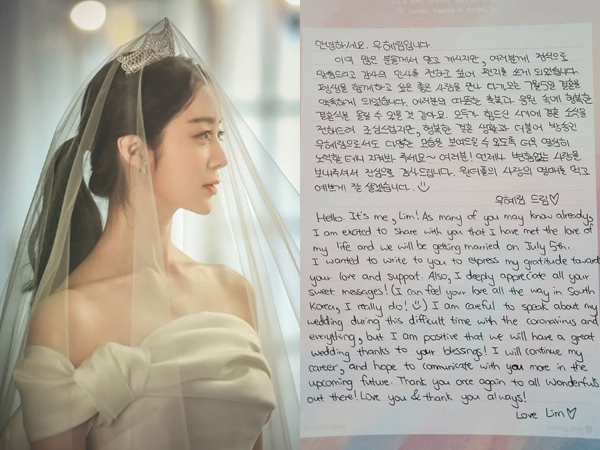 안녕하세요. 우혜림입니다.
이미 많은 분들께서 알고 계시지만, 여러분께 정식으로
말씀드리고 감사의 인사를 전하고 싶어 편지를 쓰게 되었습니다.
평생을 함께하고 싶은 좋은 사람을 만나 다가오는 7월5일 결혼을
약속하게 되었습니다. 여러분의 따뜻한 축복과 응원 속에 행복한
결혼식을 올릴 수 있을 것 같아요. 모두가 힘드신 시기에 결혼 소식을
전하는게 조심스럽지만, 행복한 결혼 생활과 더불어 방송인
우혜림으로서도 다양한 모습을 보여드릴 수 있도록 더욱 열심히
노력할 테니 지켜봐 주세요~ 여러분! 언제나 변함없는 사랑을
보내주셔서 진심으로 감사드립니다. 원더풀의 사랑의 열매를 먹고
예쁘게 잘 살겠습니다. ☺
우혜림 드림♡
Hello. It's me, Lim! As many of you may know already,
I am excited to share with you that I have met the love of
my life and we will be getting married on July 5th.
I wanted to write to you to express my gratitude toward
your love and support. Also, I deeply appreciate all your
sweet messages! (I can feel your love all the way in South
Korea, I really do! ☺) I am careful to speak about my
wedding during this difficult time with the coronavirus and
everything, but I am positive that we will have a great
wedding thanks to your blessings! I will continue my
career, and hope to communicate with you more in the
upcoming future. Thank you once again to all Wonderfuls
out there! Love you & thank you always!
Love Lim♡